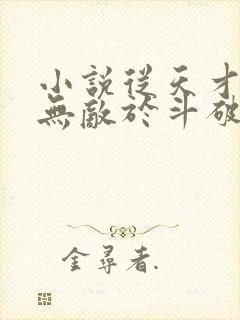 小說從天才
無敵於斗破
金尋者.